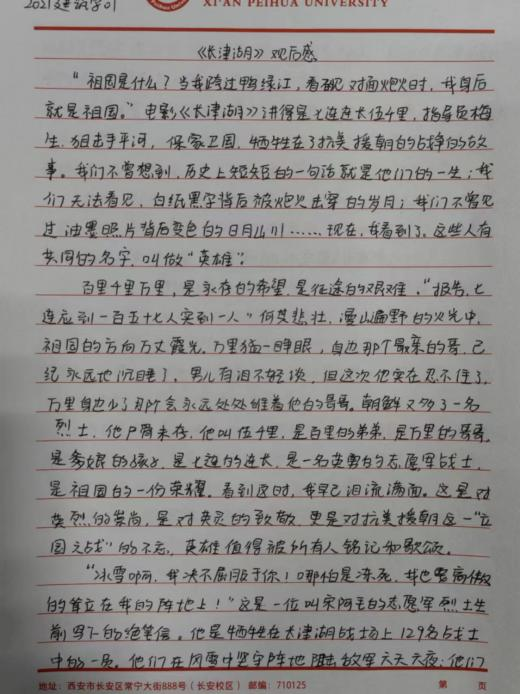 2021建筑学01
XI'AN PEIHUA UNIVERSITY
《长津湖》观后感
"祖国是什么？当我跨过鸭绿江，看砚对面炮火时，我身后
就是祖国。"电影《长津湖》讲得是七连连长伍千里，指导员梅
生，狙击手平河，保家卫国，牺牲在了抗美援朝的战争的故
事。我们不曾想到，历史上短短的一句话就是他们的一生；我
们无法看见，白纸黑字背后被炮火击穿的岁月；我们不曾见
过油墨照片背后变色的日月山川……现在，我看到了，这些人有
共同的名字，叫做"英雄"。
百里千里万里，是永存的希望，是征途的艰难。"报告，七
连应到一百五十七人实到一人"何其悲壮，漫山遍野的火光中，
祖国的方向万丈霞光。万里猛一睁眼，身边那个最亲的哥，已
经永远地沉睡了。男儿有泪不轻谈，但这次他实在忍不住了，
万里身边少了那个会永远处处维着他的哥哥。朝鲜又多了一名
烈士，他尸骨未存，他叫伍千里，是百里的弟弟，是万里的哥哥，
是爹娘的孩子，是七连的连长，是一名英勇的志愿军战士，
是祖国的一份荣耀。看到这时，我早已泪流满面。这是对
英烈的崇尚，是对英灵的致敬，更是对抗美援朝这一"立
国之战"的不忘，英雄值得被所有人铭记和歌颂。
"冰雪啊，我决不屈服于你！哪怕是冻死，我也要高傲
的耸立在我的阵地上！"这是一位叫宋阿毛的志愿军烈士生
前写下的绝笔信。他是牺牲在长津湖战场上129名战士
中的一员。他们在风雪中坚守阵地阻击敌军六天六夜；他们
地址：西安市长安区常宁大街888号（长安校区） 邮编：710125 第 页